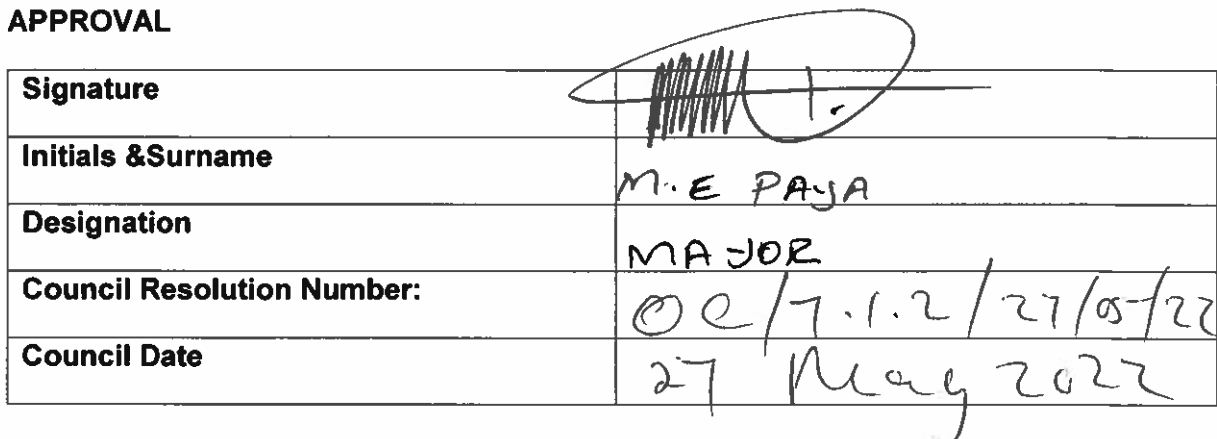 APPROVAL
Signature
Initials &Surname
M.E PAYA
Designation
MAJOR
Council Resolution Number:
OC/7.1.2/27/05/22
Council Date
27 May 2022